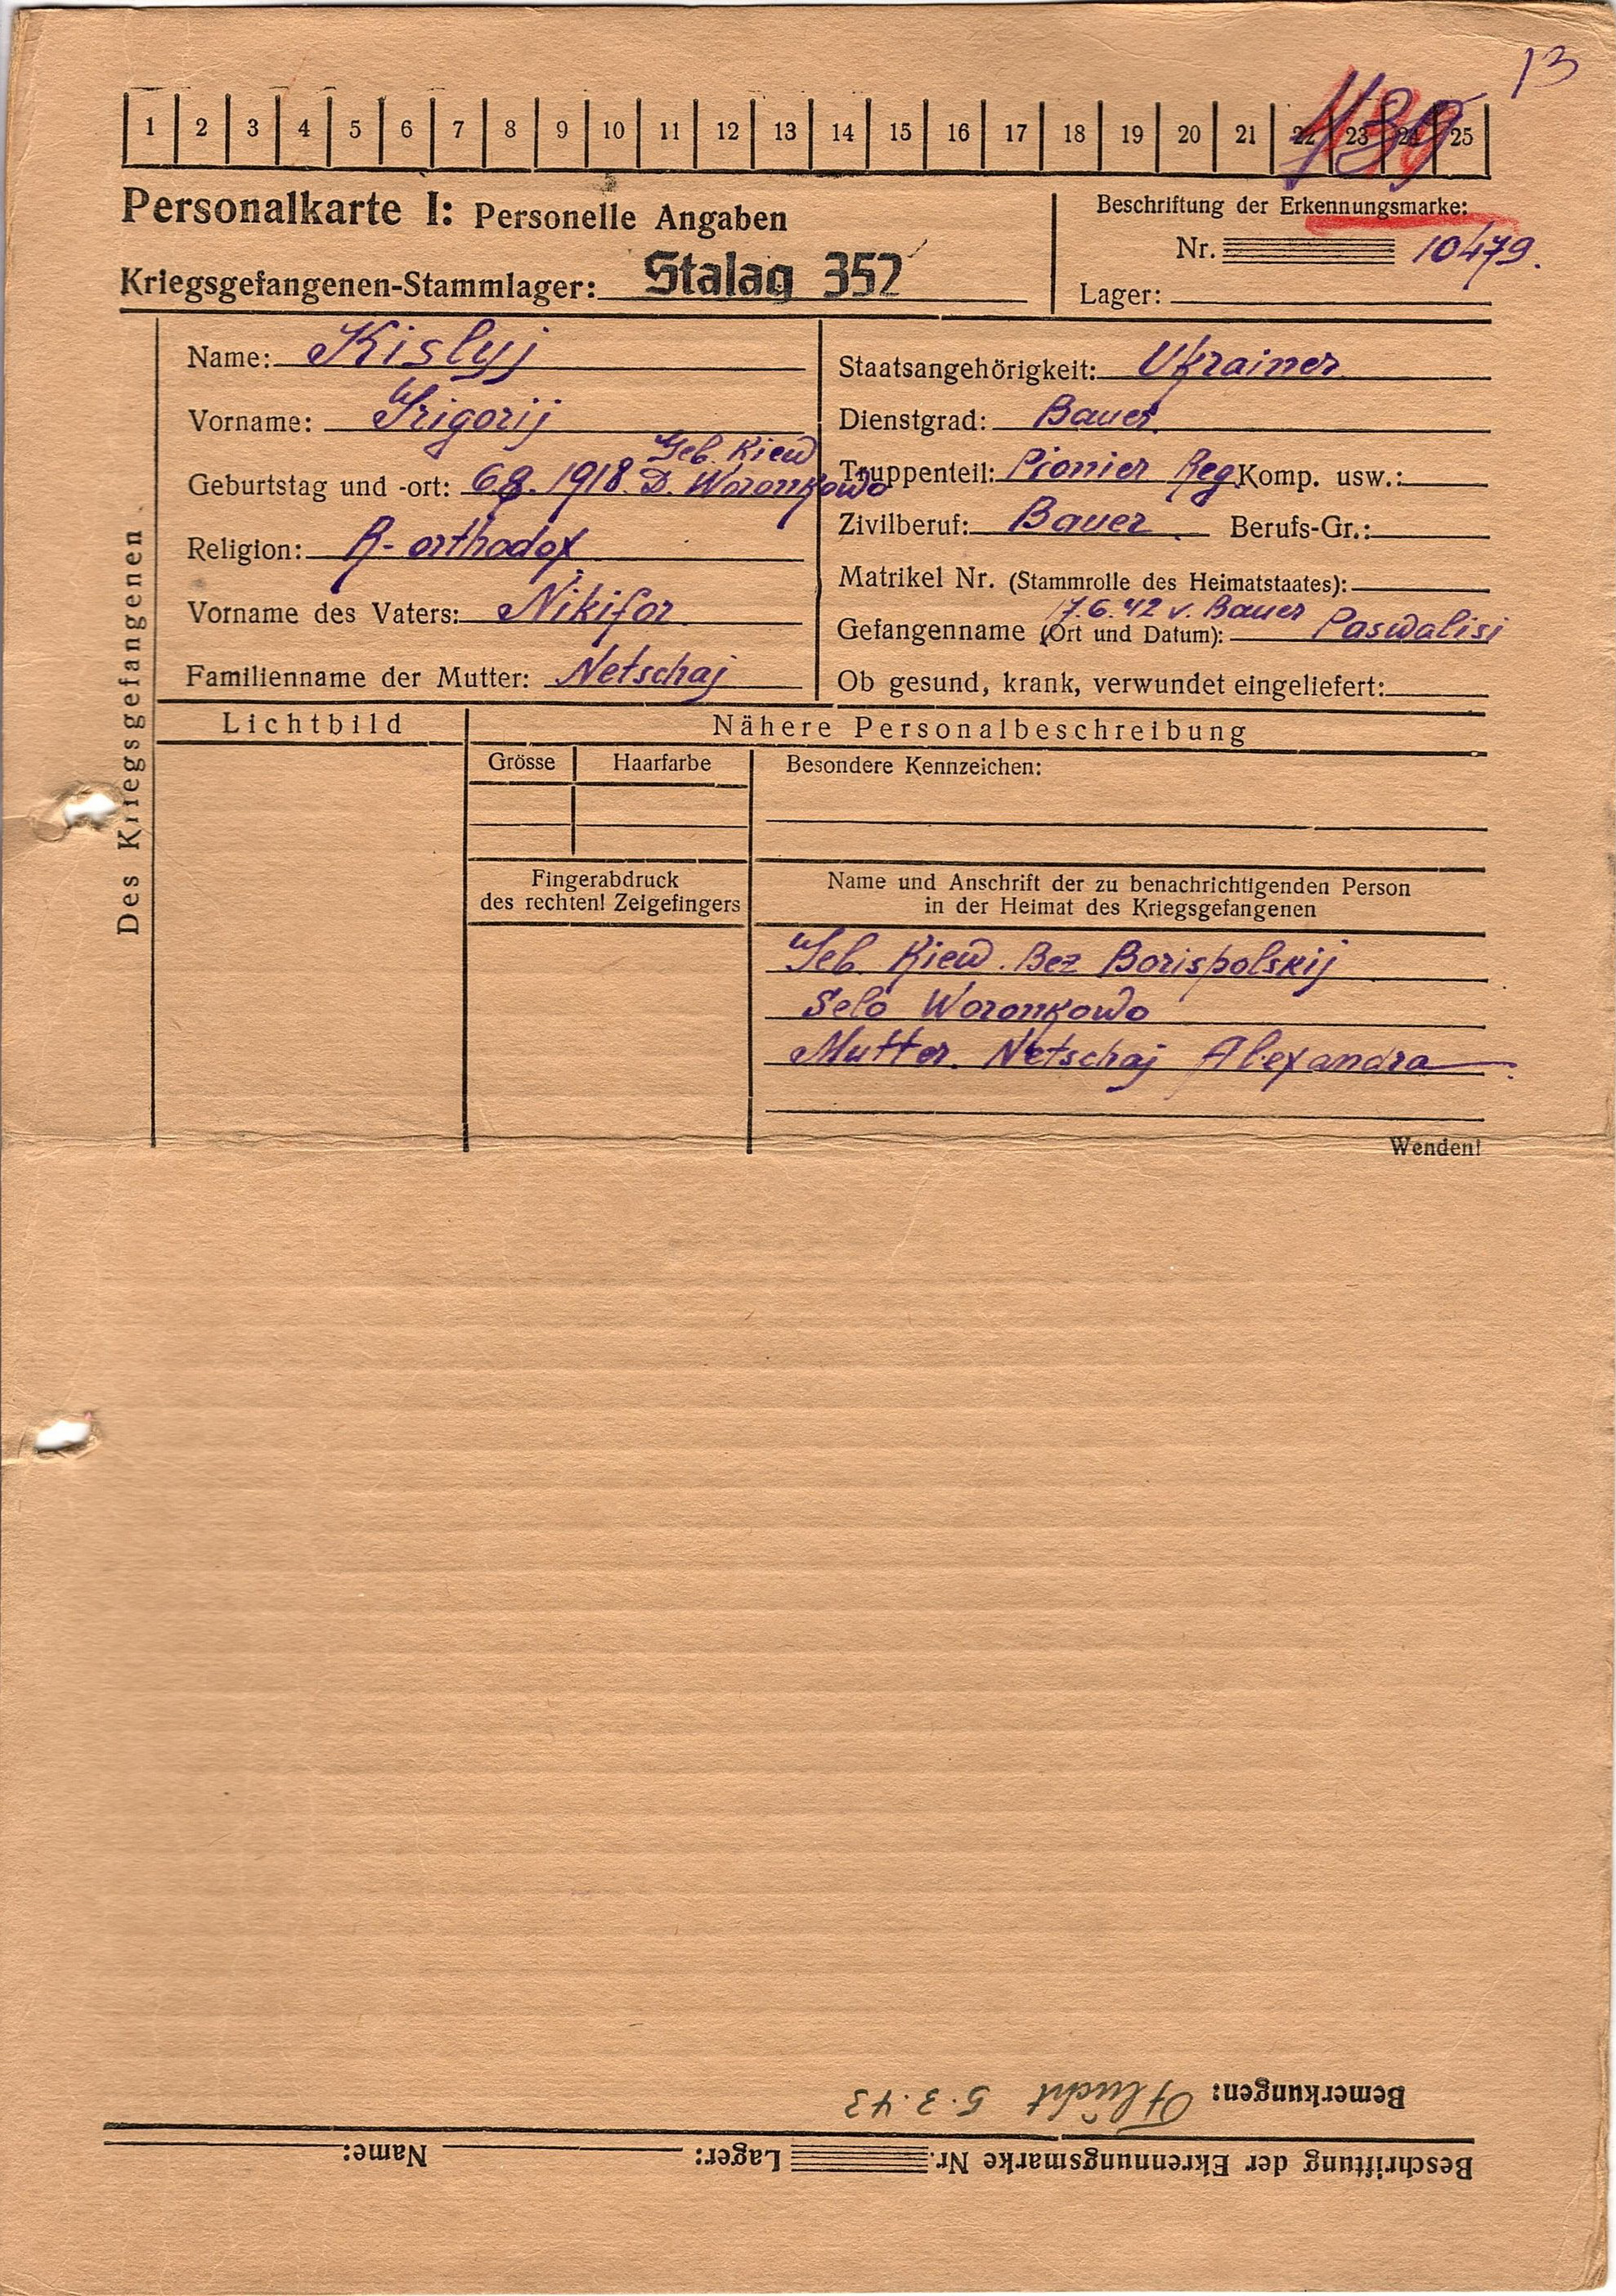 13
139
1 2 3 4 5 6 7 8 9 10 11 12 13 14 15 16 17 18 19 20 21 22 23 24 25
Personalkarte I: Personelle Angaben
Kriegsgefangenen-Stammlager: Stalag 352
Beschriftung der Erkennungsmarke:
Nr. 10479.
Lager:
Des Kriegsgefangenen
Name: Kislyj
Vorname: Grigorij
Geb. Kiew
Geburtstag und -ort: 6.8.1918. D. Woronkowo
Religion: R-orthodox
Vorname des Vaters: Nikifor
Familienname der Mutter: Netschaj
Staatsangehörigkeit: Ukrainer
Dienstgrad: Bauer
Truppenteil: Pionier Reg Komp. usw.:
Zivilberuf: Bauer Berufs-Gr.:
Matrikel Nr. (Stammrolle des Heimatstaates):
17.6.42 v. Bauer
Gefangenname (Ort und Datum): Paswalisi
Ob gesund, krank, verwundet eingeliefert:
Lichtbild
Nähere Personalbeschreibung
Grösse Haarfarbe
Besondere Kennzeichen:
Fingerabdruck
des rechten! Zeigefingers
Name und Anschrift der zu benachrichtigenden Person
in der Heimat des Kriegsgefangenen
Geb. Kiew. Bez Borispolskij
Selo Woronkowo
Mutter. Netschaj Alexandra
Wenden!
Beschriftung der Ekrennungsmarke Nr. Lager: Name:
Bemerkungen: Flucht 5.3.43